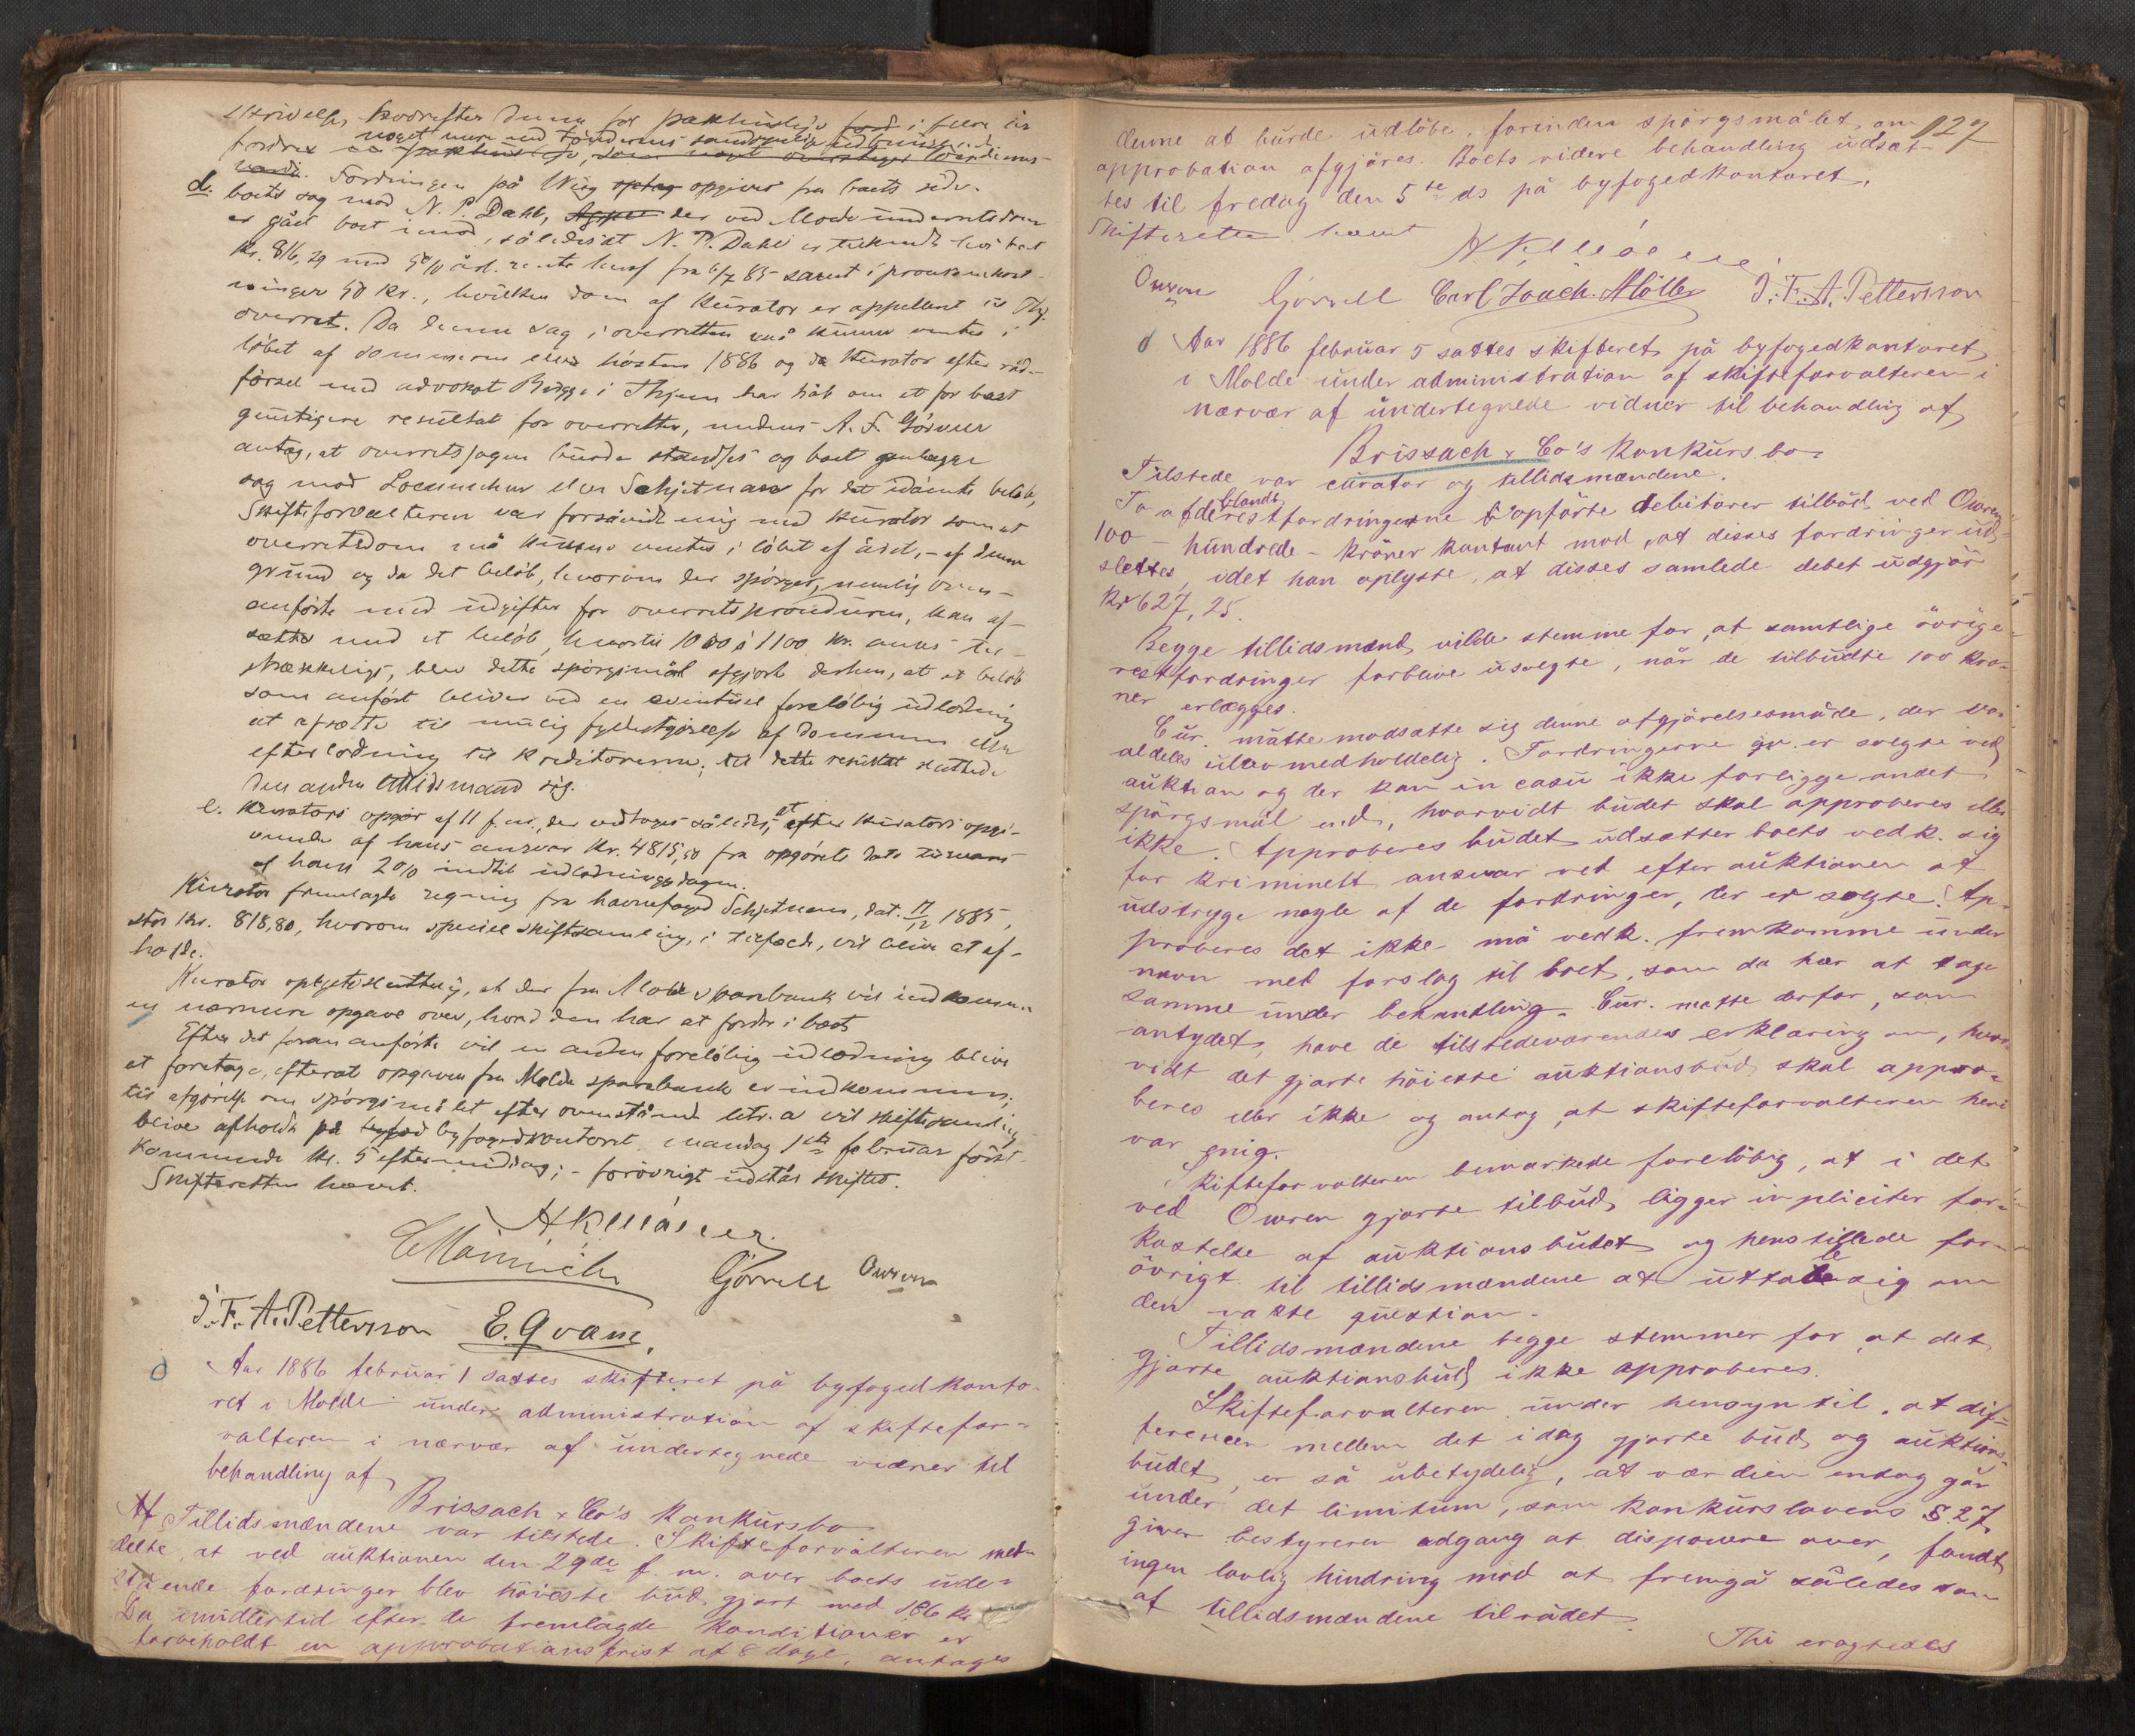 skrivelse, hvorefter denne for pakhusleje i flere år
noget mere end Tøndernes sandsynlige udbringende
fordrer en pakhusleje, som noget overstiger Tøndernes
værdi. Fordringen på Wiig optag opgives fra boets side.
d. boets sag mod N. P. Dahl, Appel der ved Molde underretsdom
er gået boet imod, således at N. P. Dahl er tilkendt hos boet
Kr. 816,29 med 5% årl. rente heraf fra 6/7 85 samt i procesomkost-
ninger 50 Kr., hvilken dom af kurator er appelleret til Thj.
overret. Da denne sag i overretten må kunne ventes i
løbet af sommeren eller høsten 1886 og da kurator efter råd-
førsel med advokat Bugge i Thjem har håb om et for boet
gunstigere resultat for overretten, medens A. F. Görvell
antog, at overretssagen burde standses og boet anlægge
sag mod Locenichen eller Schjetnan for det idømte beløb,
Skifteforvalteren var forsåvidt enig med kurator som at
overretsdom må kunne ventes i løbet af året, – af denne
grund og da det beløb, hvorom der spørges, nemlig oven-
anførte med udgifter for overretsproceduren, kan af-
sættes med et beløb, hvortil 1000 à 1100 kr. anses til-
strækkeligt, blev dette spørgsmål afgjort derhen, at et beløb
som anført bliver ved en eventuel foreløbig udlodning
at afsætte til mulig fyldestgjørelse af dommen eller
efterlodning til kreditorerne; til dette resultat sluttede
den anden tillidsmand sig.
e. Kurators opgør af 11 f. m., der vedtoges således, at efter kurators opgi-
vende af hans ansvar Kr. 4815,50 fra opgørets dato tilsvares
af ham 2% indtil udlodningsdagen.
Kurator fremlagde regning fra havnefoged Schjetnan, dat. 17/12 1885,
stor Kr. 818,80, hvorom speciel skiftesamling, i tilfælde, vil blive at af-
holde.
Kurator oplyste sluttelig, at der fra Molde sparebank vil indkomme
en nærmere opgave over, hvad den har at fordre i boet
Efter det foran anførte vil en anden foreløbig udlodning blive
at foretage, efterat opgaven fra Molde sparebank er indkommen;
til afgørelse om spørgsmålet efter ovenstående litr. a vil skiftesamling
blive afholdt på byfod byfogedkontoret mandag 1ste februar først-
kommende kl. 5 eftermiddag; – forøvrigt udstår skiftet.
Skifteretten hævet.
Görvell Owren
J. F. A. Pettersson E. Qvam.
Aar 1886 februar 1 sattes skifteret på byfogedkonto-
ret i Molde under administration af skiftefor-
valteren i nærvær af undertegnede vidner til
behandling af
Brissach & Co's Konkursbo
Af Tillidsmændene var tilstede. Skifteforvalteren med-
delte, at ved auktionen den 29de f. m. over boets ude-
stående fordringer blev höieste bud gjort med 186 kr
Da imidlertid efter de fremlagde konditioner er
forbeholdt en approbationsfrist af 8 dage, antages
127
denne at burde udløbe, forinden spörgsmålet om
approbation afgjöres. Boets videre behandling udsat-
tes til fredag den 5te ds på byfogedkontoret.
Skifteretten hævet
Owren Görvell Carl Joach. Möller J. F. A. Pettersson
Aar 1886 februar 5 sattes skifteret på byfogedkontoret
i Molde under administration af skifteforvalteren i
nærvær af undertegnede vidner til behandling af
Brissach & Co's konkursbo.
Tilstede var curator og tillidsmændene.
To af de blandt restfordringerne opförte debitorer tilböd ved Owren
100 – hundrede – kröner kontant mod, at disses fordringer ud-
slettes, idet han oplyste, at disses samlede debet udgjör
kr 627,25.
Begge tillidsmænd vilde stemme for, at samtlige övrige
restfordringer forblive usolgte, når de tilbudte 100 kro-
ner erlægges.
Cur. måtte modsætte sig denne afgjörelsesmåde, der var
aldeles ulovmedholdelig. Fordringerne jo er solgte ved
auktion og der kan in casu ikke foreligge andet
spörgsmål end, hvorvidt budet skal approberes eller
ikke. Approberes budet udsætter boets vedk. sig
for kriminelt ansvar ved efter auktionen at
udstryge nogle af de fordringer, der er solgte. Ap-
proberes det ikke må vedk. fremkomme under
navn med forslag til boet, som da har at tage
samme under behandling. Cur. måtte derfor, som
antydet, have de tilstedeværendes erklæring om, hvor-
vidt det gjorte höieste auktionsbud skal appro-
beres eller ikke og antog, at skifteforvalteren heri
var enig.
Skifteforvalteren bemærkede foreløbig, at i det
ved Owren gjorte tilbud ligger impliciter for-
kastelse af auktionsbudet og henstillede for-
övrigt til tillidsmændene at uttale sig om
den vakte question.
Tillidsmændene begge stemmer for, at det
gjorte auktionsbud ikke approberes.
Skifteforvalteren under hensyn til, at dif-
ferencen mellem det idag gjorte bud og auktions-
budet er så ubetydelig, at værdien endog går
under det limitum, som konkurslovens § 27
giver bestyreren adgang at disponere over, fandt
ingen lovlig hindring mod at fremgå således som
af tillidsmændene tilrådet.
Thi eragtedes